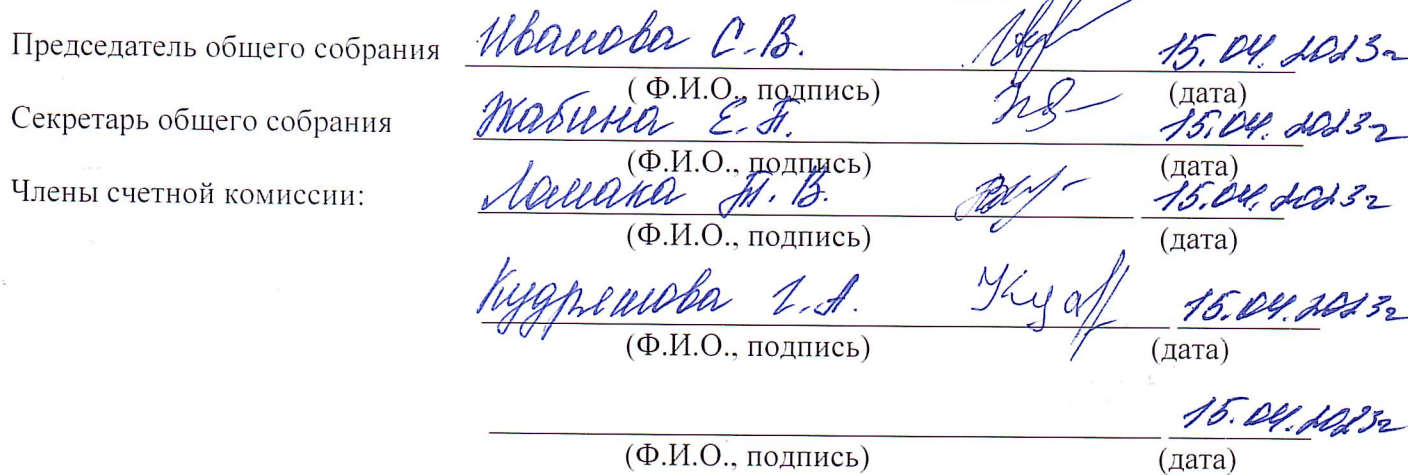 Председатель общего собрания Иванова С.В. 15.04.2023г
( Ф.И.О., подпись) (дата)
Секретарь общего собрания Жабина Е.П. 15.04.2023г
(Ф.И.О., подпись) (дата)
Члены счетной комиссии: Ломака Т.В. 15.04.2023г
(Ф.И.О., подпись) (дата)
Кудряшова Г.А. 15.04.2023г
(Ф.И.О., подпись) (дата)
15.04.2023г
(Ф.И.О., подпись) (дата)